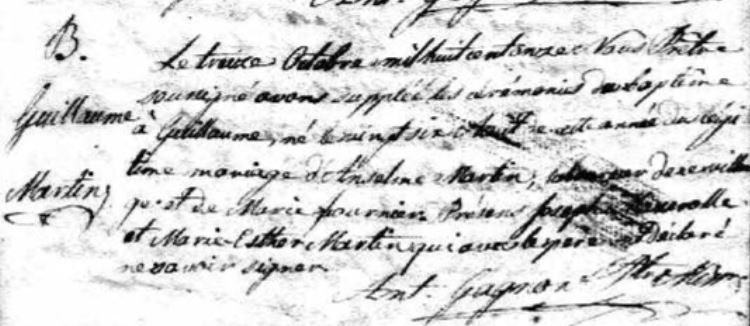 B.
Guillaume
Martin
Le treize Octobre mil huit cent onze Nous Prêtre
soussigné avons suppléé les cérémonies du baptême
à Guillaume, né le vingt six Août de cette année du légi
time mariage d'Anselme Martin,
et de Marie fournier Présens Joseph
et Marie Esther Martin qui avec le père ont Déclaré
ne savoir signer
Ant. Gagnon Ptre